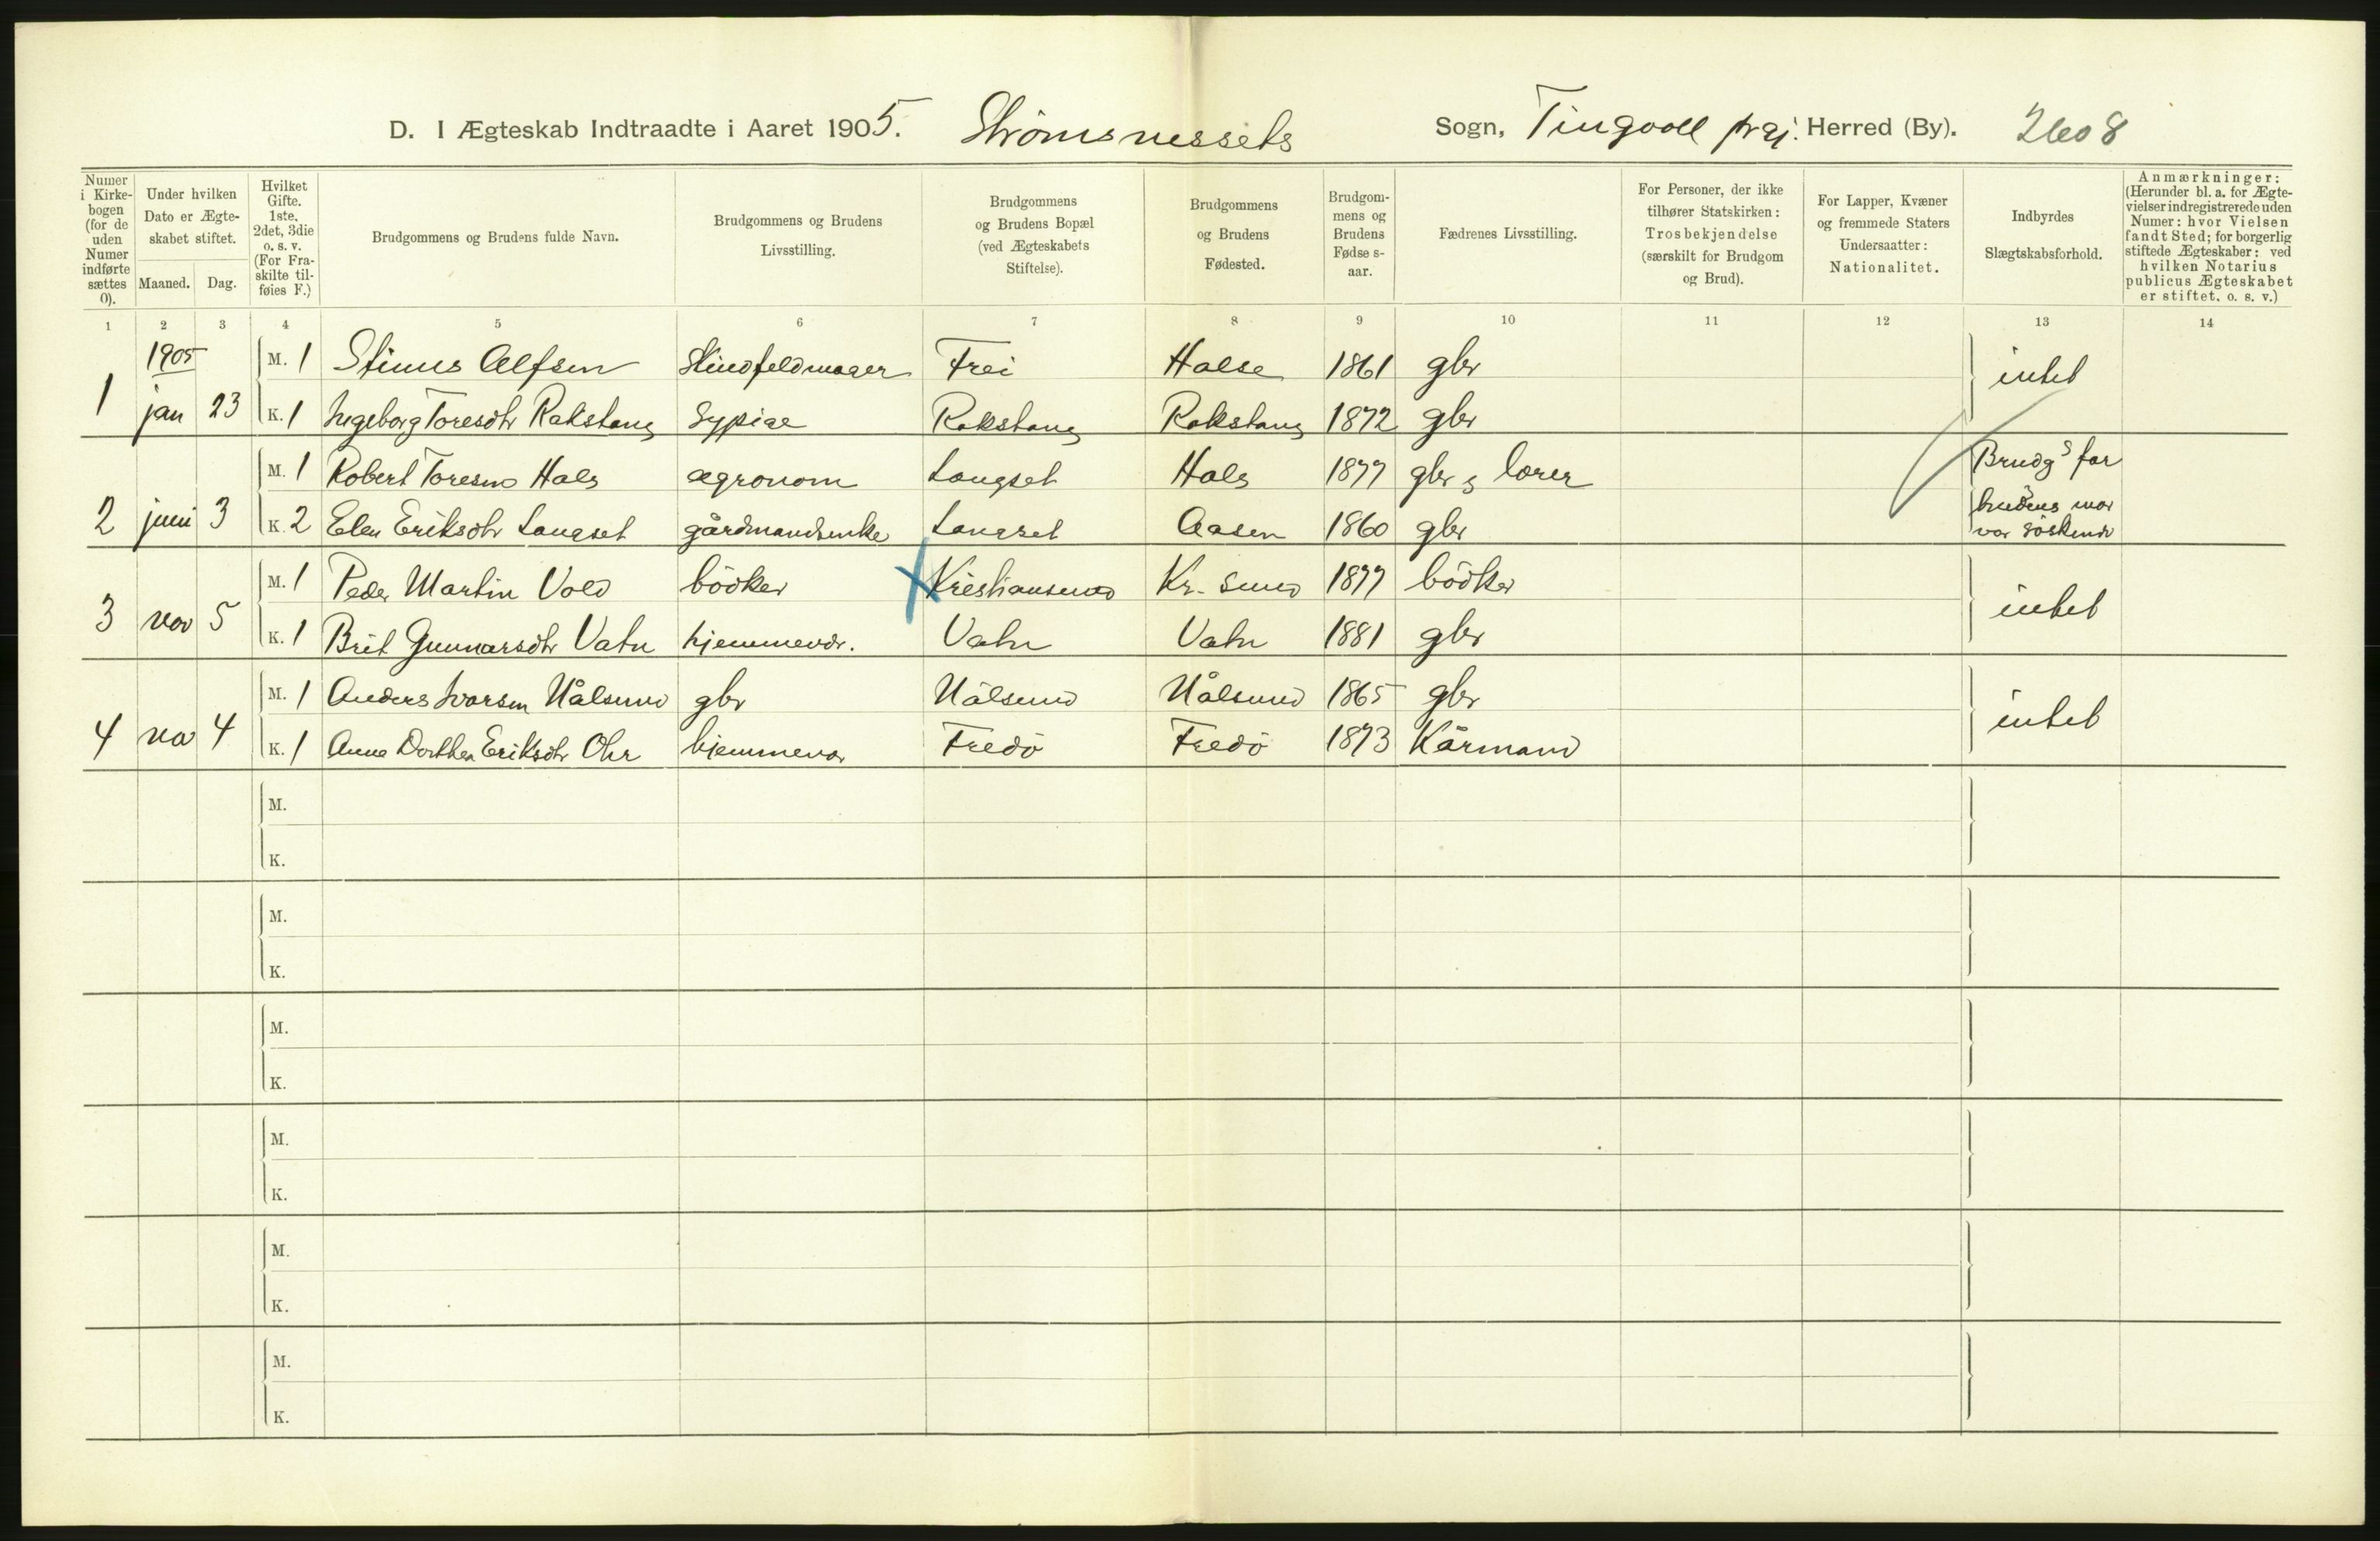 D. I Ægteskab Indtraadte i Aaret 1905. Strömsnessets Sogn, Tingvoll prgj. Herred (By). 2608
Numer i Kirkebogen (for de uden Numer indførte sættes 0).
Under hvilken Dato er Ægteskabet stiftet.
Maaned. Dag.
Hvilket Gifte. 1ste, 2det, 3die o. s. v. (For Fraskilte tilføies F.)
Brudgommens og Brudens fulde Navn.
Brudgommens og Brudens Livsstilling.
Brudgommens og Brudens Bopæl (ved Ægteskabets Stiftelse).
Brudgommens og Brudens Fødested.
Brudgommens og Brudens Fødselsaar.
Fædrenes Livsstilling.
For Personer, der ikke tilhører Statskirken: Trosbekjendelse (særskilt for Brudgom og Brud).
For Lapper, Kvæner og fremmede Staters Undersaatter: Nationalitet.
Indbyrdes Slægtskabsforhold.
Anmærkninger: (Herunder bl. a. for Ægtevielser indregistrerede uden Numer: hvor Vielsen fandt Sted; for borgerlig stiftede Ægteskaber: ved hvilken Notarius publicus Ægteskabet er stiftet. o. s. v.)
1 2 3 4 5 6 7 8 9 10 11 12 13 14
1905
M. 1 Stinus Alfsen Skindfeldmager Frei Halse 1861 gbr intet
1 jan 23 K. 1 Ingeborg Toresdtr Rakstang Sypige Rakstang Rakstang 1872 gbr
M. 1 Robert Toresen Hals agronom Langset Hals 1877 gbr & lærer Brudgs far
2 juni 3 K. 2 Elen Eriksdtr Langset gårdmandsenke Langset Aasen 1860 gbr brudens mor var söskende
M. 1 Peder Martin Vold bödker Kristiansund Kr. sund 1877 bödker intet
3 nov 5 K. 1 Brit Gunnarsdtr Vatn hjemmevær. Vatn Vatn 1881 gbr
M. 1 Anders Ivarsen Nålsund gbr Nålsund Nålsund 1865 gbr intet
4 nov 4 K. 1 Anne Dorthea Eriksdtr Ohr hjemmevær Fredö Fredö 1873 Kårmand
M.
K.
M.
K.
M.
K.
M.
K.
M.
K.
M.
K.